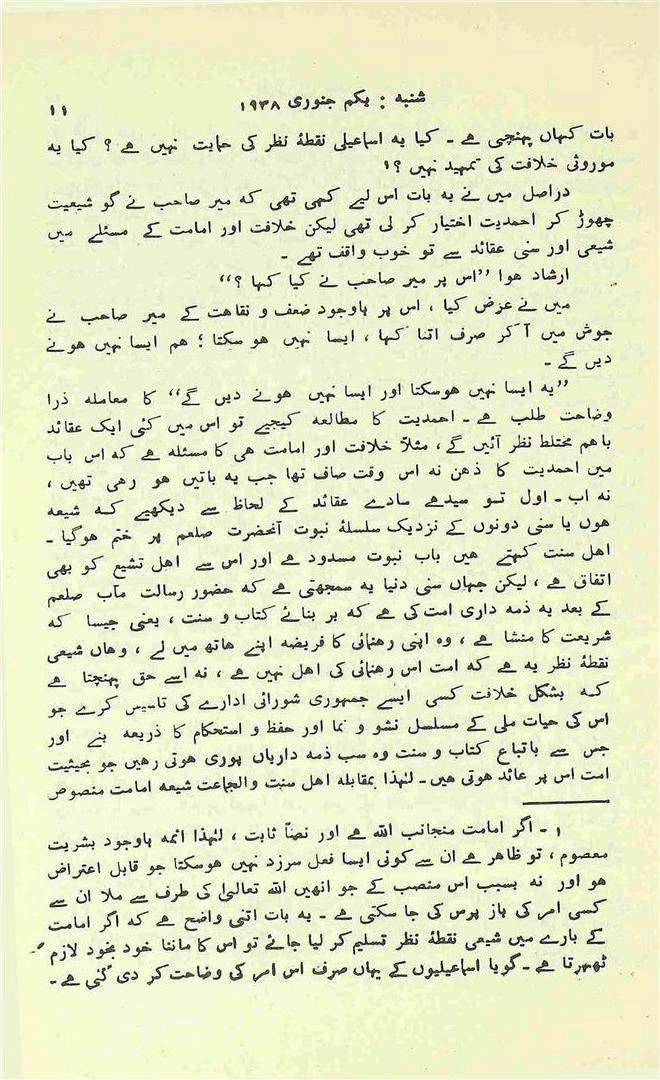 شنبہ : یکم جنوری ۱۹۳۸
۱۱
بات کہاں پہنچی ہے ۔ کیا یہ اسماعیلی نقطۂ نظر کی حمایت نہیں ہے ؟ کیا یہ
موروثی خلافت کی تمہید نہیں ؟۱
دراصل میں نے یہ بات اس لیے کہی تھی کہ میر صاحب نے گو شیعیت
چھوڑ کر احمدیت اختیار کر لی تھی لیکن خلافت اور امامت کے مسئلے میں
شیعی اور سنی عقائد سے تو خوب واقف تھے ۔
ارشاد ہوا ”اس پر میر صاحب نے کیا کہا ؟“
میں نے عرض کیا ، اس پر باوجود ضعف و نقاہت کے میر صاحب نے
جوش میں آ کر صرف اتنا کہا ، ایسا نہیں ہو سکتا ؛ ہم ایسا نہیں ہونے
دیں گے ۔
”یہ ایسا نہیں ہوسکتا اور ایسا نہیں ہونے دیں گے“ کا معاملہ ذرا
وضاحت طلب ہے ۔ احمدیت کا مطالعہ کیجیے تو اس میں کئی ایک عقائد
باہم مختلط نظر آئیں گے ، مثلاً خلافت اور امامت ہی کا مسئلہ ہے کہ اس باب
میں احمدیت کا ذہن نہ اس وقت صاف تھا جب یہ باتیں ہو رہی تھیں ،
نہ اب ۔ اول تو سیدھے سادے عقائد کے لحاظ سے دیکھیے کہ شیعہ
ہوں یا سنی دونوں کے نزدیک سلسلۂ نبوت آنحضرت صلعم پر ختم ہوگیا ۔
اہل سنت کہتے ہیں باب نبوت مسدود ہے اور اس سے اہل تشیع کو بھی
اتفاق ہے ، لیکن جہاں سنی دنیا یہ سمجھتی ہے کہ حضور رسالت مآب صلعم
کے بعد یہ ذمہ داری امت کی ہے کہ بر بنائے کتاب و سنت ، یعنی جیسا کہ
شریعت کا منشا ہے ، وہ اپنی رہنمائی کا فریضہ اپنے ہاتھ میں لے ، وہاں شیعی
نقطۂ نظر یہ ہے کہ امت اس رہنمائی کی اہل نہیں ہے ، نہ اسے حق پہنچتا ہے
کہ بشکل خلافت کسی ایسے جمہوری شورائی ادارے کی تاسیس کرے جو
اس کی حیات ملی کے مسلسل نشو و نما اور حفظ و استحکام کا ذریعہ بنے اور
جس سے باتباع کتاب و سنت وہ سب ذمہ داریاں پوری ہوتی رہیں جو بحیثیت
امت اس پر عائد ہوتی ہیں ۔ لہٰذا بمقابلہ اہل سنت والجماعت شیعہ امامت منصوص
۱ ۔ اگر امامت منجانب اللہ ہے اور نصّاً ثابت ، لہٰذا ائمہ باوجود بشریت
معصوم ، تو ظاہر ہے ان سے کوئی ایسا فعل سرزد نہیں ہوسکتا جو قابل اعتراض
ہو اور نہ بسبب اس منصب کے جو انھیں اللہ تعالیٰ کی طرف سے ملا ان سے
کسی امر کی باز پرس کی جا سکتی ہے ۔ یہ بات اتنی واضح ہے کہ اگر امامت
کے بارے میں شیعی نقطۂ نظر تسلیم کر لیا جائے تو اس کا ماننا خود بخود لازم
ٹھہرتا ہے ۔ گویا اسماعیلیوں کے یہاں صرف اس امر کی وضاحت کر دی گئی ہے ۔